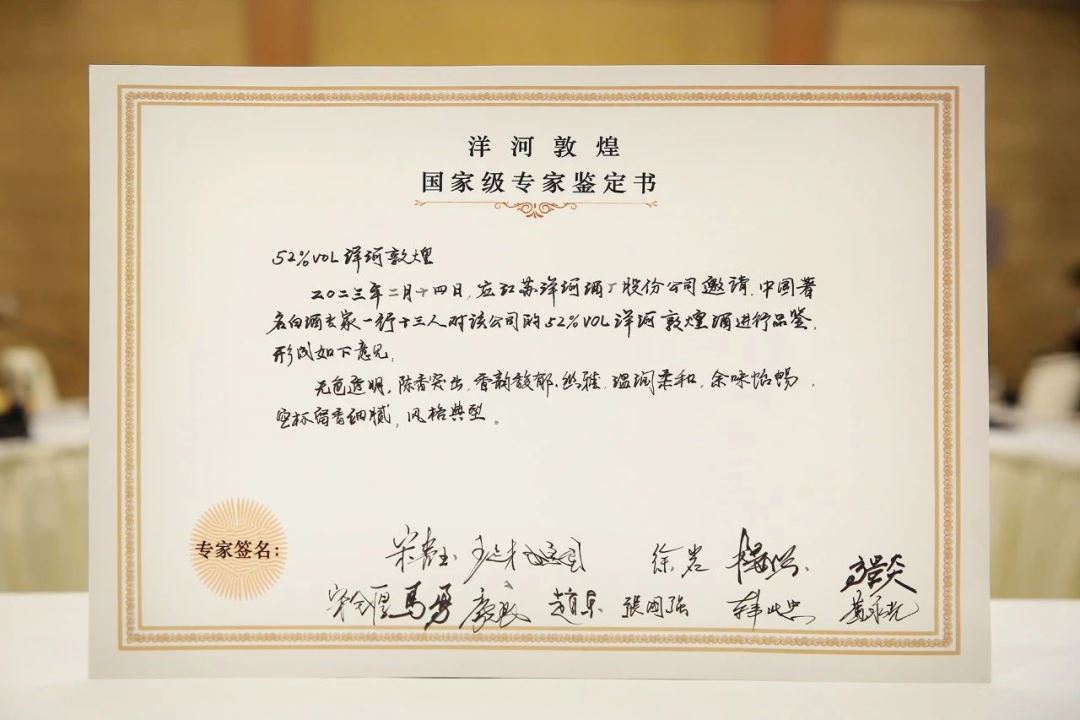 洋河敦煌
国家级专家鉴定书
52%VOL洋河敦煌
二〇二三年二月十四日,应江苏洋河酒厂股份公司邀请,中国著
名白酒专家一行十三人对该公司的52%VOL洋河敦煌酒进行品鉴,
形成如下意见,
无色透明,陈香突出,香韵馥郁、幽雅,温润柔和,余味怡畅,
空杯留香细腻,风格典型。
专家签名:
宋书玉 徐岩
马勇 赵东 张国强